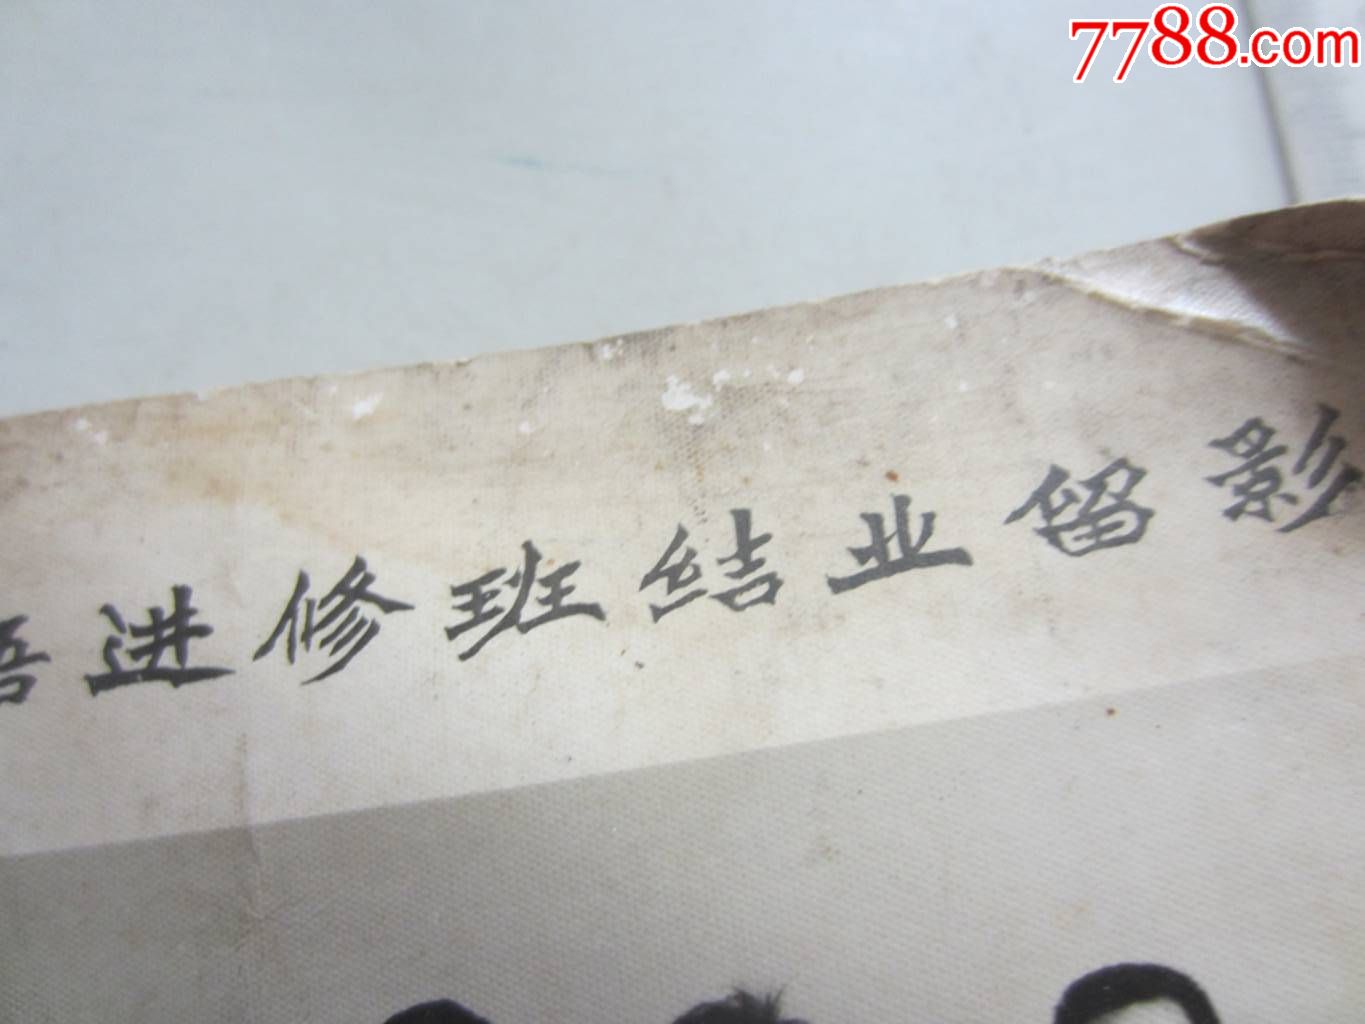 7788.com
进修班结业留影